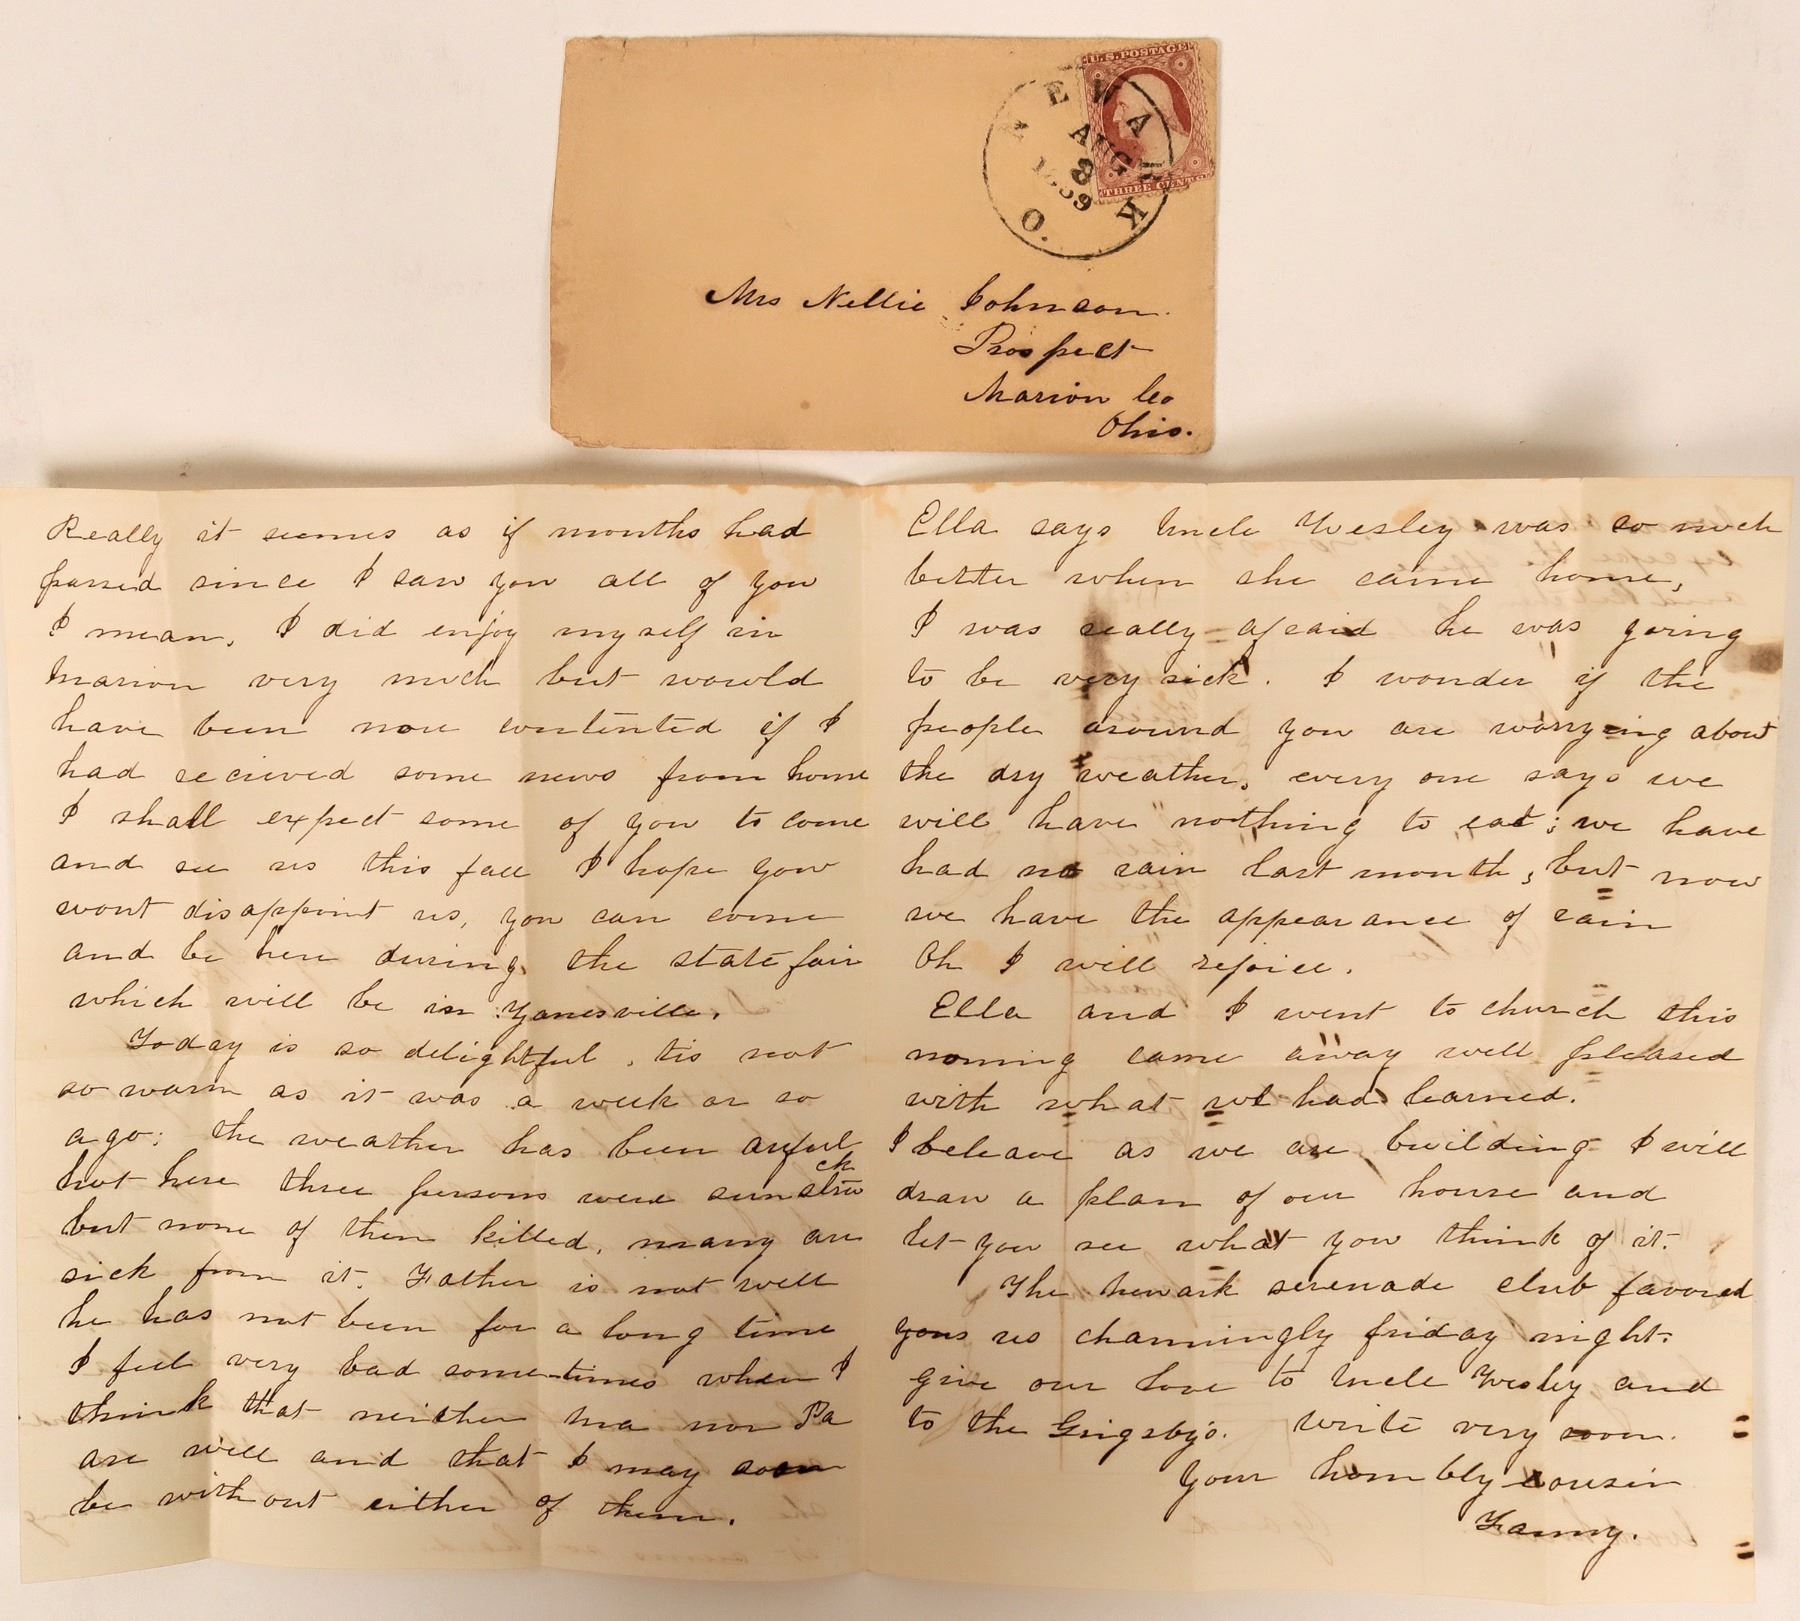 U.S. POSTAGE
NEWARK
AUG
8
1859
O.
THREE CENTS
Mrs Nellie Johnson.
Prospect
Marion Co
Ohio.
Really it seemes as if months had
passed since I saw you all of you
I mean. I did enjoy myself in
Marion very much but would
have been more contented if I
had recieved some news from home
I shall expect some of you to come
and see us this fall I hope you
wont disappoint us, you can come
and be here during the state fair
which will be in Zanesville.
Today is so delightful, tis not
so warm as it was a week or so
ago; the weather has been awful
hot here three persons were sunstruck
but none of them killed, many are
sick from it. Father is not well
he has not been for a long time
I feel very bad some-times when I
think that neither ma nor Pa
are well and that I may soon
be without either of them.
Ella says Uncle Wesley was so much
better when she came home,
I was really afraid he was going
to be very sick. I wonder if the
people around you are worrying about
the dry weather, every one says we
will have nothing to eat; we have
had no rain last month, but now
we have the appearance of rain
Oh I will rejoice.
Ella and I went to church this
morning came away well pleased
with what we had learned.
I beleave as we are building I will
draw a plan of our house and
let you see what you think of it.
The Newark serenade club favored
us charmingly friday night.
give our love to Uncle Wesley and
to the Grigsby's. Write very soon.
Your hombly cousin
Fanny.